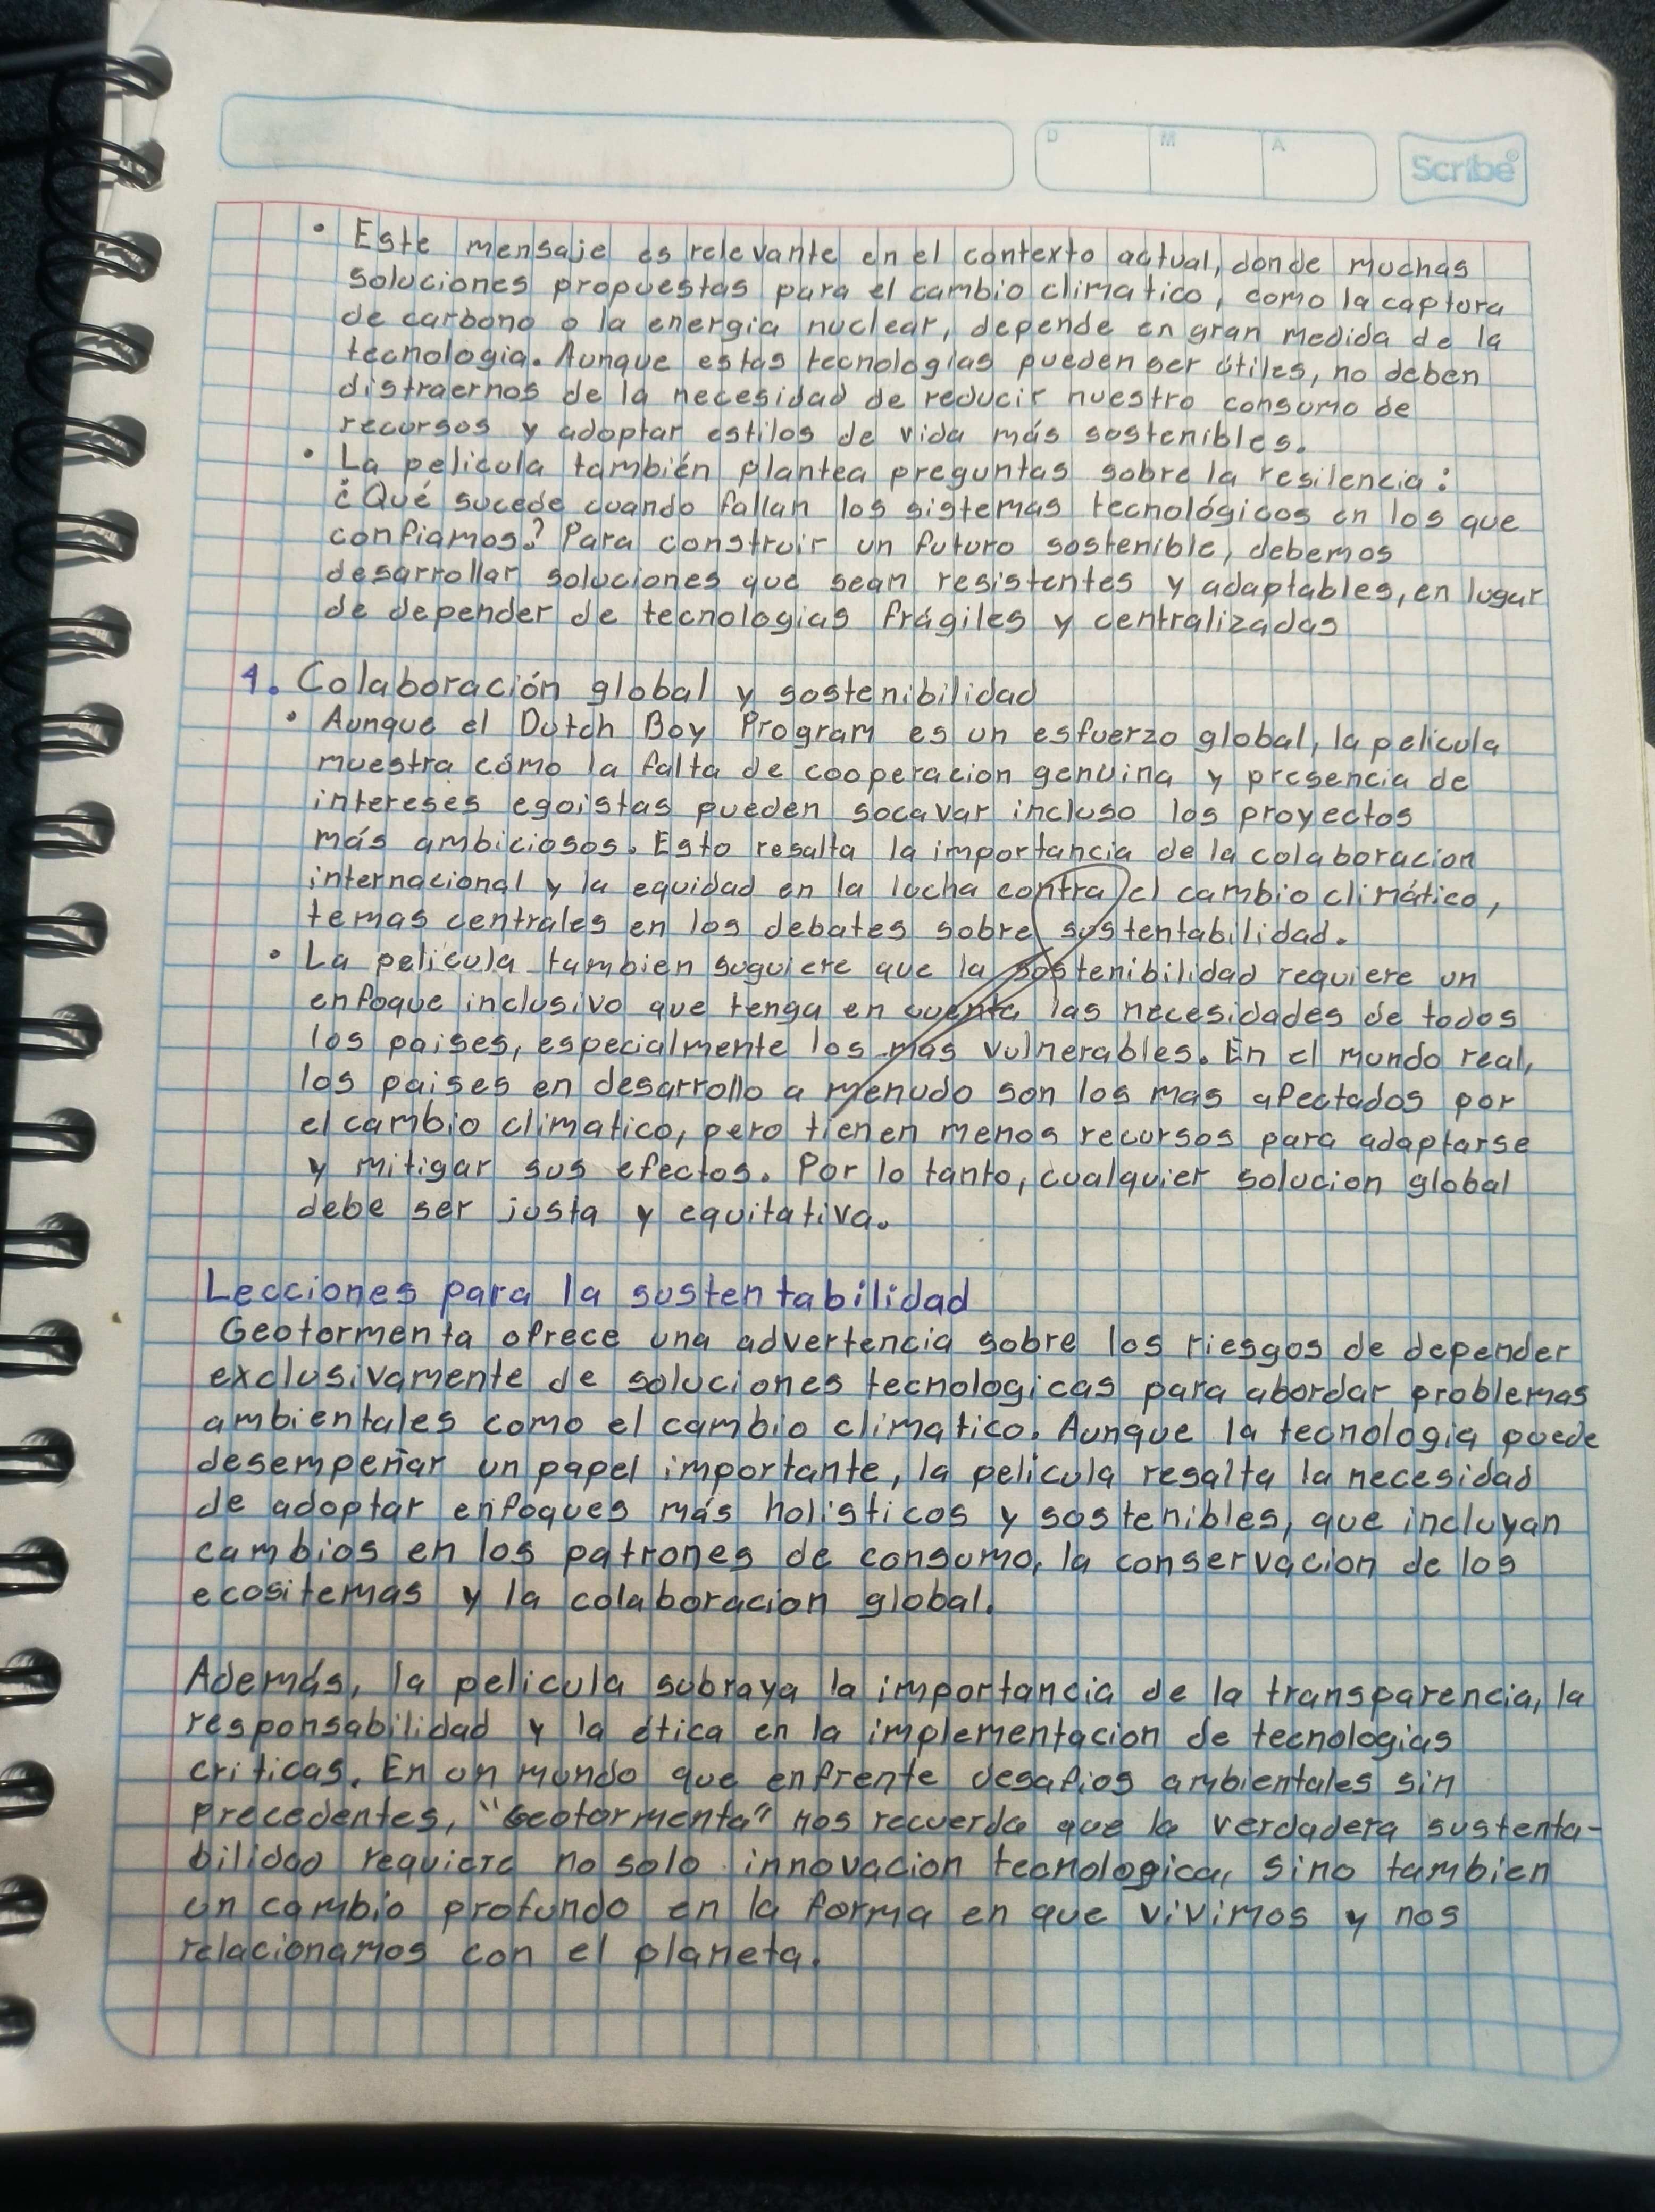 D M A Scribe
• Este mensaje es relevante en el contexto actual, donde muchas
soluciones propuestas para el cambio climatico, como la captura
de carbono o la energia nuclear, depende en gran medida de la
tecnologia. Aunque estas tecnologias pueden ser útiles, no deben
distraernos de la necesidad de reducir nuestro consumo de
recursos y adoptar estilos de vida más sostenibles.
• La pelicula también plantea preguntas sobre la resilencia:
¿Qué sucede cuando fallan los sistemas tecnológicos en los que
confiamos? Para construir un futuro sostenible, debemos
desarrollar soluciones que sean resistentes y adaptables, en lugar
de depender de tecnologias frágiles y centralizadas
4. Colaboración global y sostenibilidad
• Aunque el Dutch Boy Program es un esfuerzo global, la pelicula
muestra cómo la falta de cooperacion genuina y presencia de
intereses egoistas pueden socavar incluso los proyectos
más ambiciosos. Esto resalta la importancia de la colaboracion
internacional y la equidad en la lucha contra el cambio climático,
temas centrales en los debates sobre sustentabilidad.
• La pelicula tambien suguiere que la sostenibilidad requiere un
enfoque inclusivo que tenga en cuenta las necesidades de todos
los paises, especialmente los más vulnerables. En el mundo real,
los paises en desarrollo a menudo son los mas afectados por
el cambio climatico, pero tienen menos recursos para adaptarse
y mitigar sus efectos. Por lo tanto, cualquier solucion global
debe ser justa y equitativa.
Lecciones para la sustentabilidad
Geotormenta ofrece una advertencia sobre los riesgos de depender
exclusivamente de soluciones tecnologicas para abordar problemas
ambientales como el cambio climatico. Aunque la tecnologia puede
desempeñar un papel importante, la pelicula resalta la necesidad
de adoptar enfoques más holisticos y sostenibles, que incluyan
cambios en los patrones de consumo, la conservacion de los
ecositemas y la colaboracion global.
Además, la pelicula subraya la importancia de la transparencia, la
responsabilidad y la ética en la implementacion de tecnologias
criticas. En un mundo que enfrente desafios ambientales sin
precedentes, "Geotormenta" nos recuerda que la verdadera sustenta-
bilidad requiere no solo innovacion tecnologica, sino tambien
un cambio profundo en la forma en que vivimos y nos
relacionamos con el planeta.